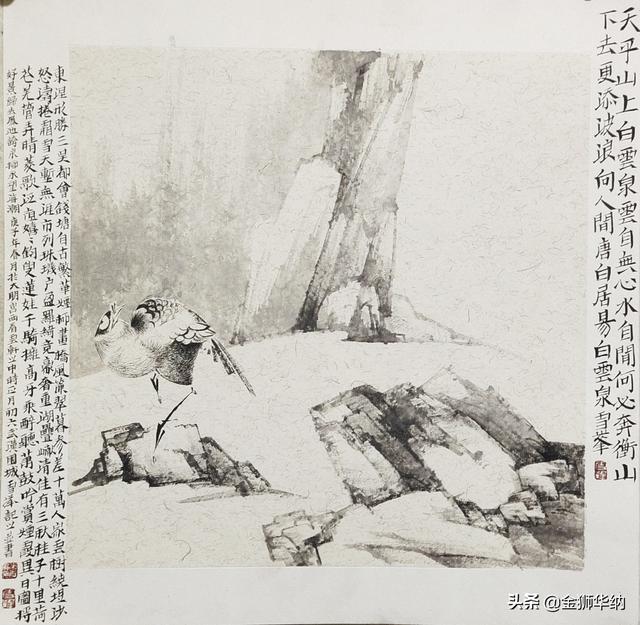 天平山上白雲泉雲自無心水自閒何必奔衝山
下去更添波浪向人間唐白居易白雲泉雪峯
東涅形勝三吴都會錢塘自古繁華煙柳畫橋風簾翠幕参差十萬人家雲樹繞堤沙
怒濤捲霜雪天塹無涯市列珠璣户盈羅綺競豪奢重湖疊巘清佳有三秋桂子十里荷
花羌管弄晴菱歌泛夜嬉〻釣叟蓮娃千騎擁高牙乘醉聽簫鼓吟賞煙霞異日圖將
好景歸去鳳池誇宋柳永望海潮庚子年春月於大明宫西看象軒之中時正月初六武漢圍城雪峯記之並書
头条 @金狮华纳